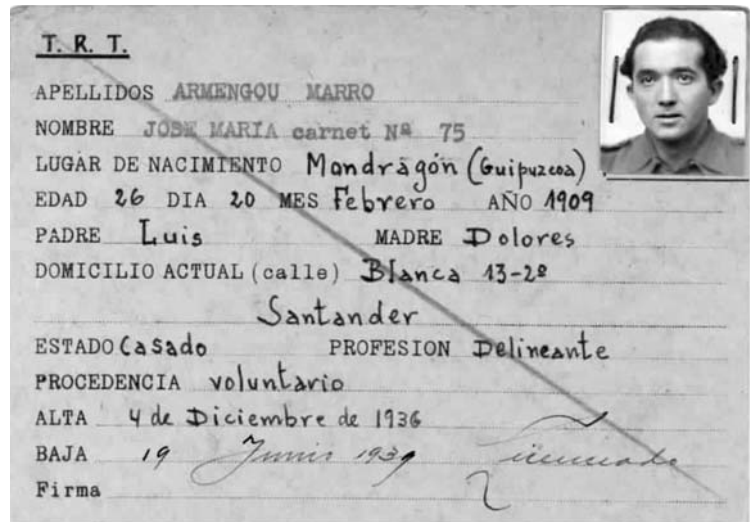 T. R. T.
APELLIDOS ARMENGOU MARRO
NOMBRE JOSE MARIA carnet Nª 75
LUGAR DE NACIMIENTO Mondragón (Guipuzcoa)
EDAD 26 DIA 20 MES Febrero AÑO 1909
PADRE Luis MADRE Dolores
DOMICILIO ACTUAL (calle) Blanca 13-2º
Santander
ESTADO Casado PROFESION Delineante
PROCEDENCIA voluntario
ALTA 4 de Diciembre de 1936
BAJA 19 Junio 1939 Licenciado
Firma